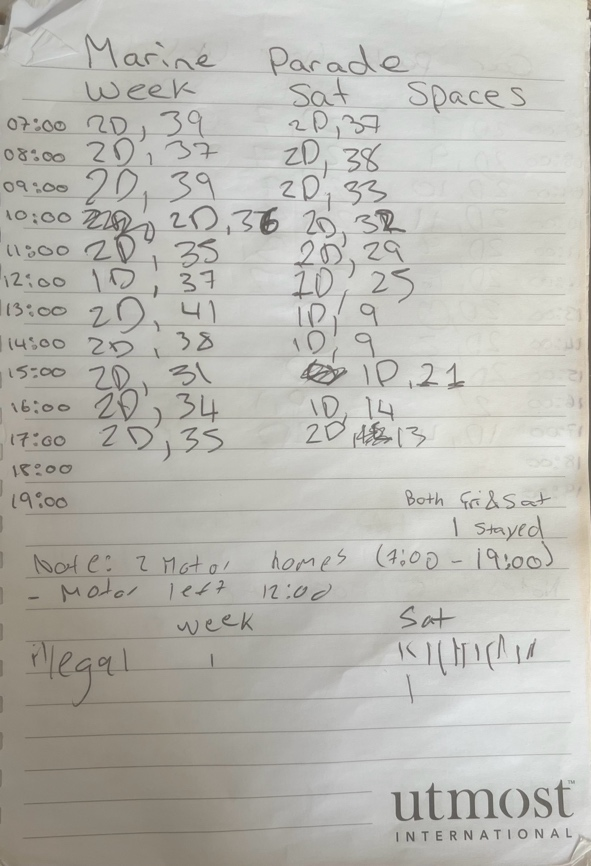 Marine Parade
Week Sat Spaces
07:00 2D, 39 2D, 37
08:00 2D, 37 2D, 38
09:00 2D, 39 2D, 33
10:00 2D, 36 2D, 32
11:00 2D, 35 2D, 29
12:00 1D, 37 2D, 25
13:00 2D, 41 1D, 9
14:00 2D, 38 1D, 9
15:00 2D, 31 1D, 21
16:00 2D, 34 1D, 14
17:00 2D, 35 2D, 13
18:00
19:00
Both Fri & Sat
1 stayed
Note: 2 Motor homes (7:00 - 19:00)
- Motor left 12:00
week Sat
illegal
utmost™
INTERNATIONAL